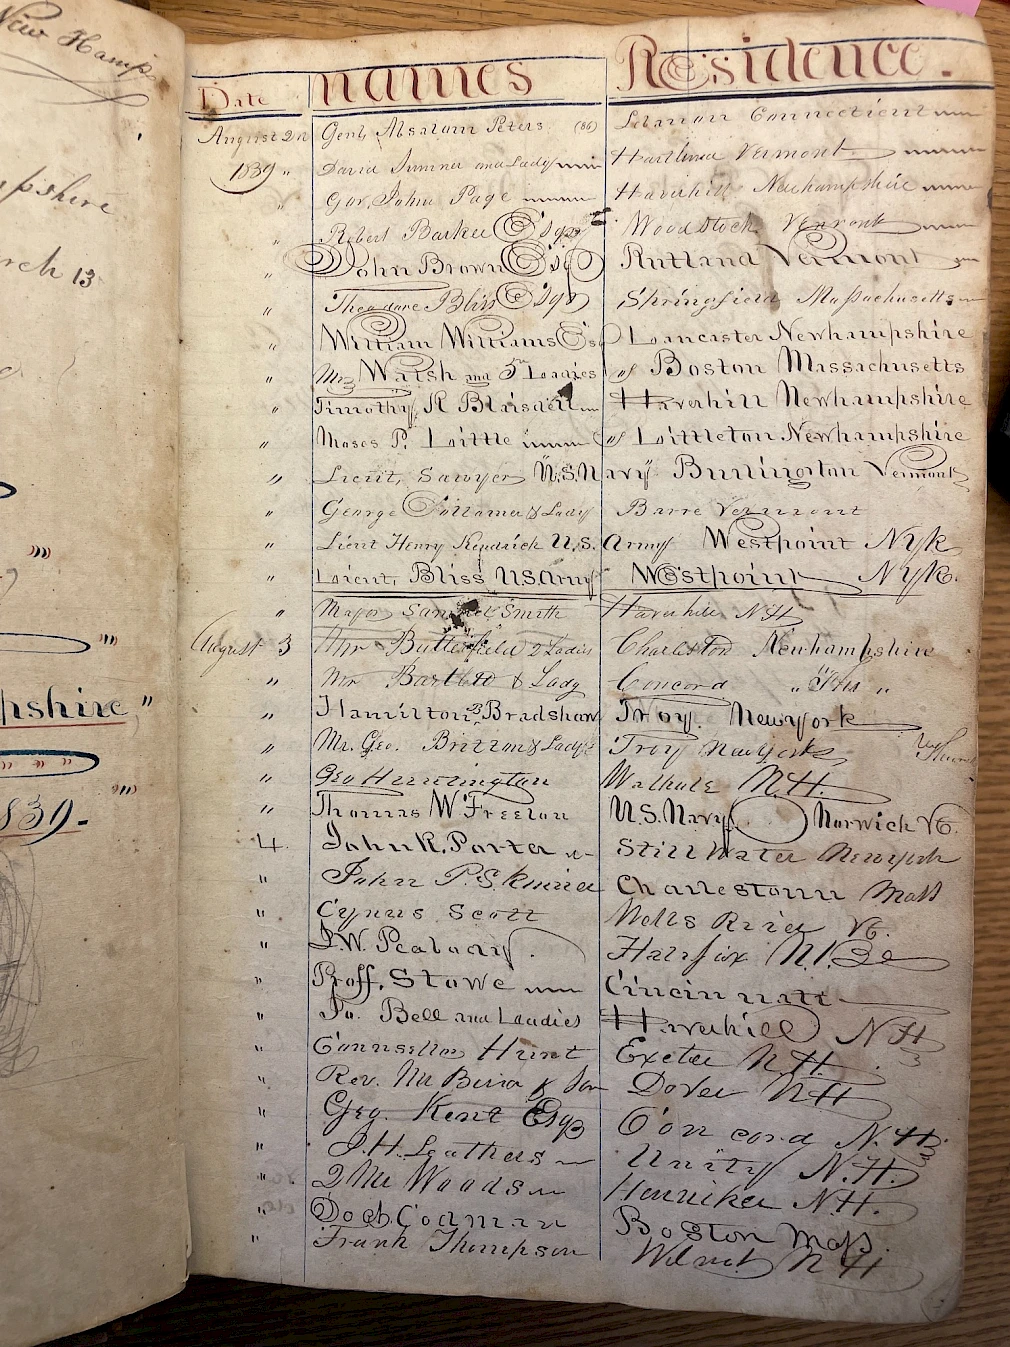 New Hamp
pshire
rch 13
pshire "
1839.
Date Names Residence.
August 2n Genl, Absalom Peters (86) Lebanon Connecticut
1839 " David Sumner and Lady Hartland Vermont
" Gov, John Page Haverhill Newhampshire
" Robert Barker Esqr Woodstock Vermont
" John Brown Esq Rutland Vermont
" Theodore Bliss Esqr Springfield Massachusetts
" William Williams Esq Lancaster Newhampshire
" Mrs Walsh and 5 Ladies of Boston Massachusetts
" Timothy R Blaisdell Haverhill Newhampshire
" Moses P. Little of Littleton Newhampshire
" Lieut, Sawyer U.S. Navy Burlington Vermont
" George & Lady Barre Vermont
" Lieut Henry Kendrick U.S. Army Westpoint NYk
" Lieut, Bliss U.S Army Westpoint NYk.
" Major Samuel Smith Haverhill NH
August 3 Mr Butterfield 2 Ladies Charleston Newhampshire
" Mr Bartlett & Lady Concord " "
" Hamilton, Bradshaw Troy Newyork
" Mr. Geo. Britton & Lady Troy Newyork
" Geo Hunnington Walpole N.H.
" Thomas W Freelon U.S. Navy Norwich Vt.
4. John K. Porter Still Water Newyork
" John P. Skinner Charlestown Mass
" Cyrus Scott Wells River Vt.
" J.W. Peabody. Halifax N.
" Proff. Stowe Cincinnati
" Ja. Bell and Laudies Haverhill NH
" Counsellor Hunt Exeter N.H.
" Rev. Mr & Son Dover NH
" Geo. Kent Esqr Concord N.H.
" J.H. Leathers Unity N.H.
" 2 Mr Woods Henniker N.H.
" Doct. Codman Boston Mass.
" Frank Thompson Wilmot NH